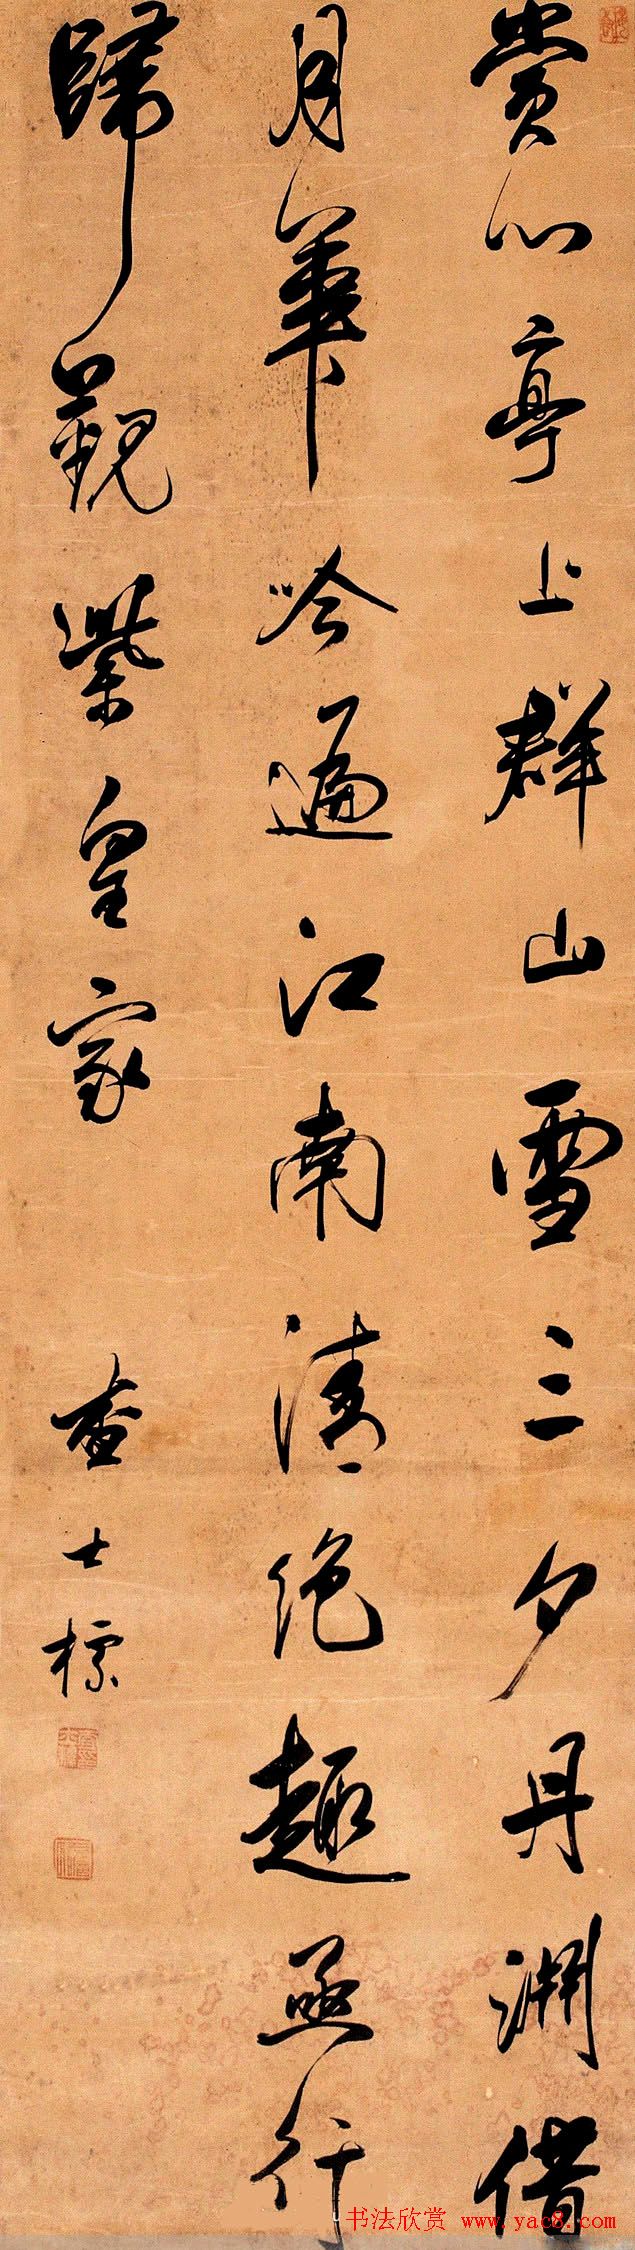 賞心亭上群山雪三夕丹淵借
月華吟遍江南清絶趣亟行
歸觐紫皇家
查士標
书法欣赏 www.yac8.com